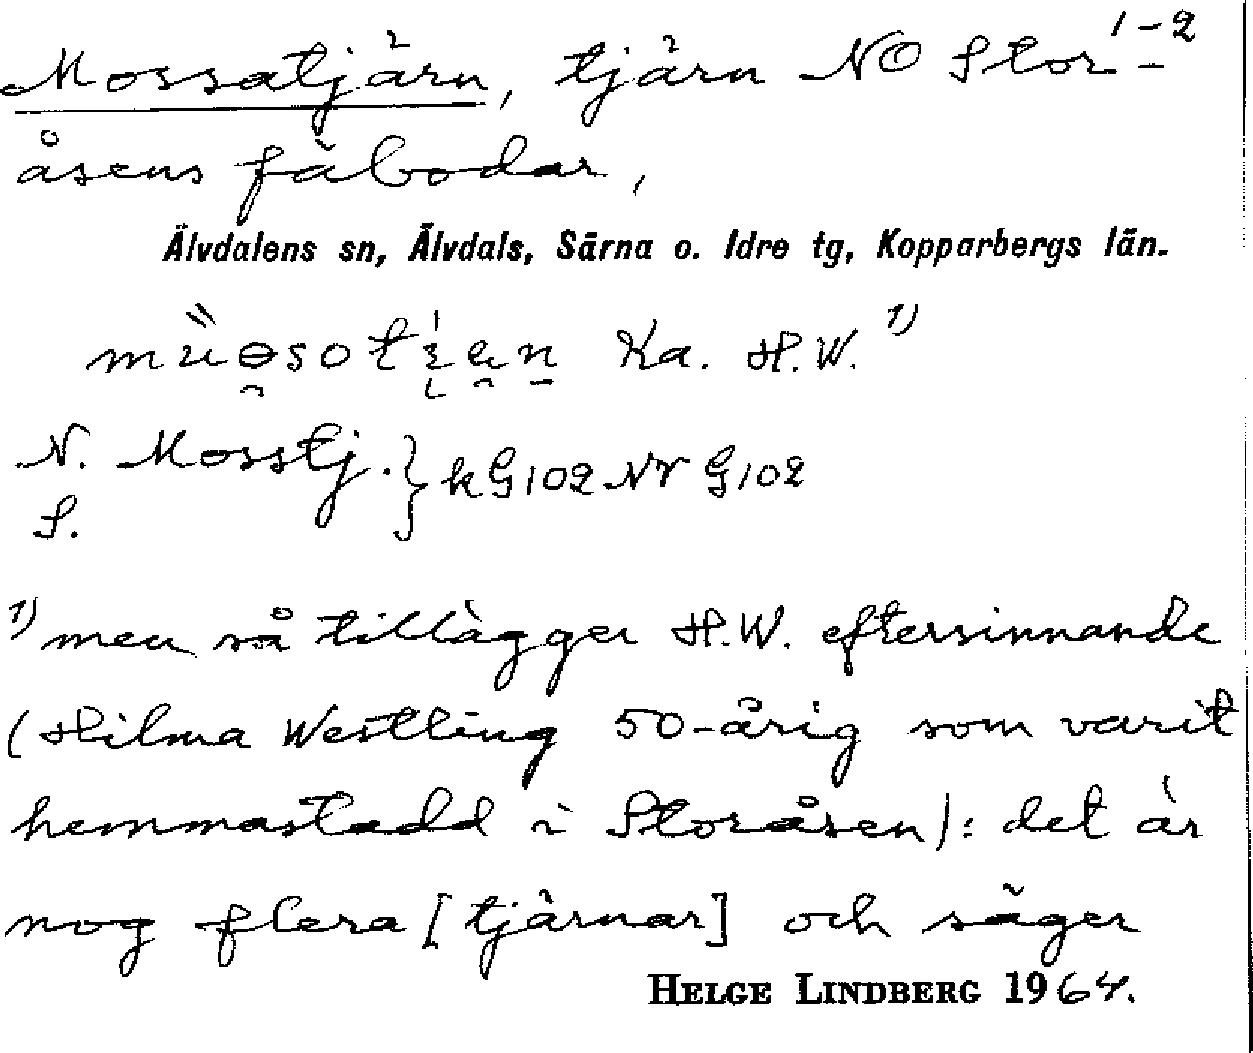 Mossatjärn, tjärn NO Stor- 1-2
åsens fäbodar,
Älvdalens sn, Älvdals, Särna o. Idre tg, Kopparbergs län.
Ka. H.W. 1)
N. Mosstj. } kG102 NV G102
S.
1) men så tillägger H.W. eftersinnande
(Hilma Westling 50-årig som varit
hemmastadd i Storåsen): det är
nog flera [tjärnar] och säger
HELGE LINDBERG 1964.